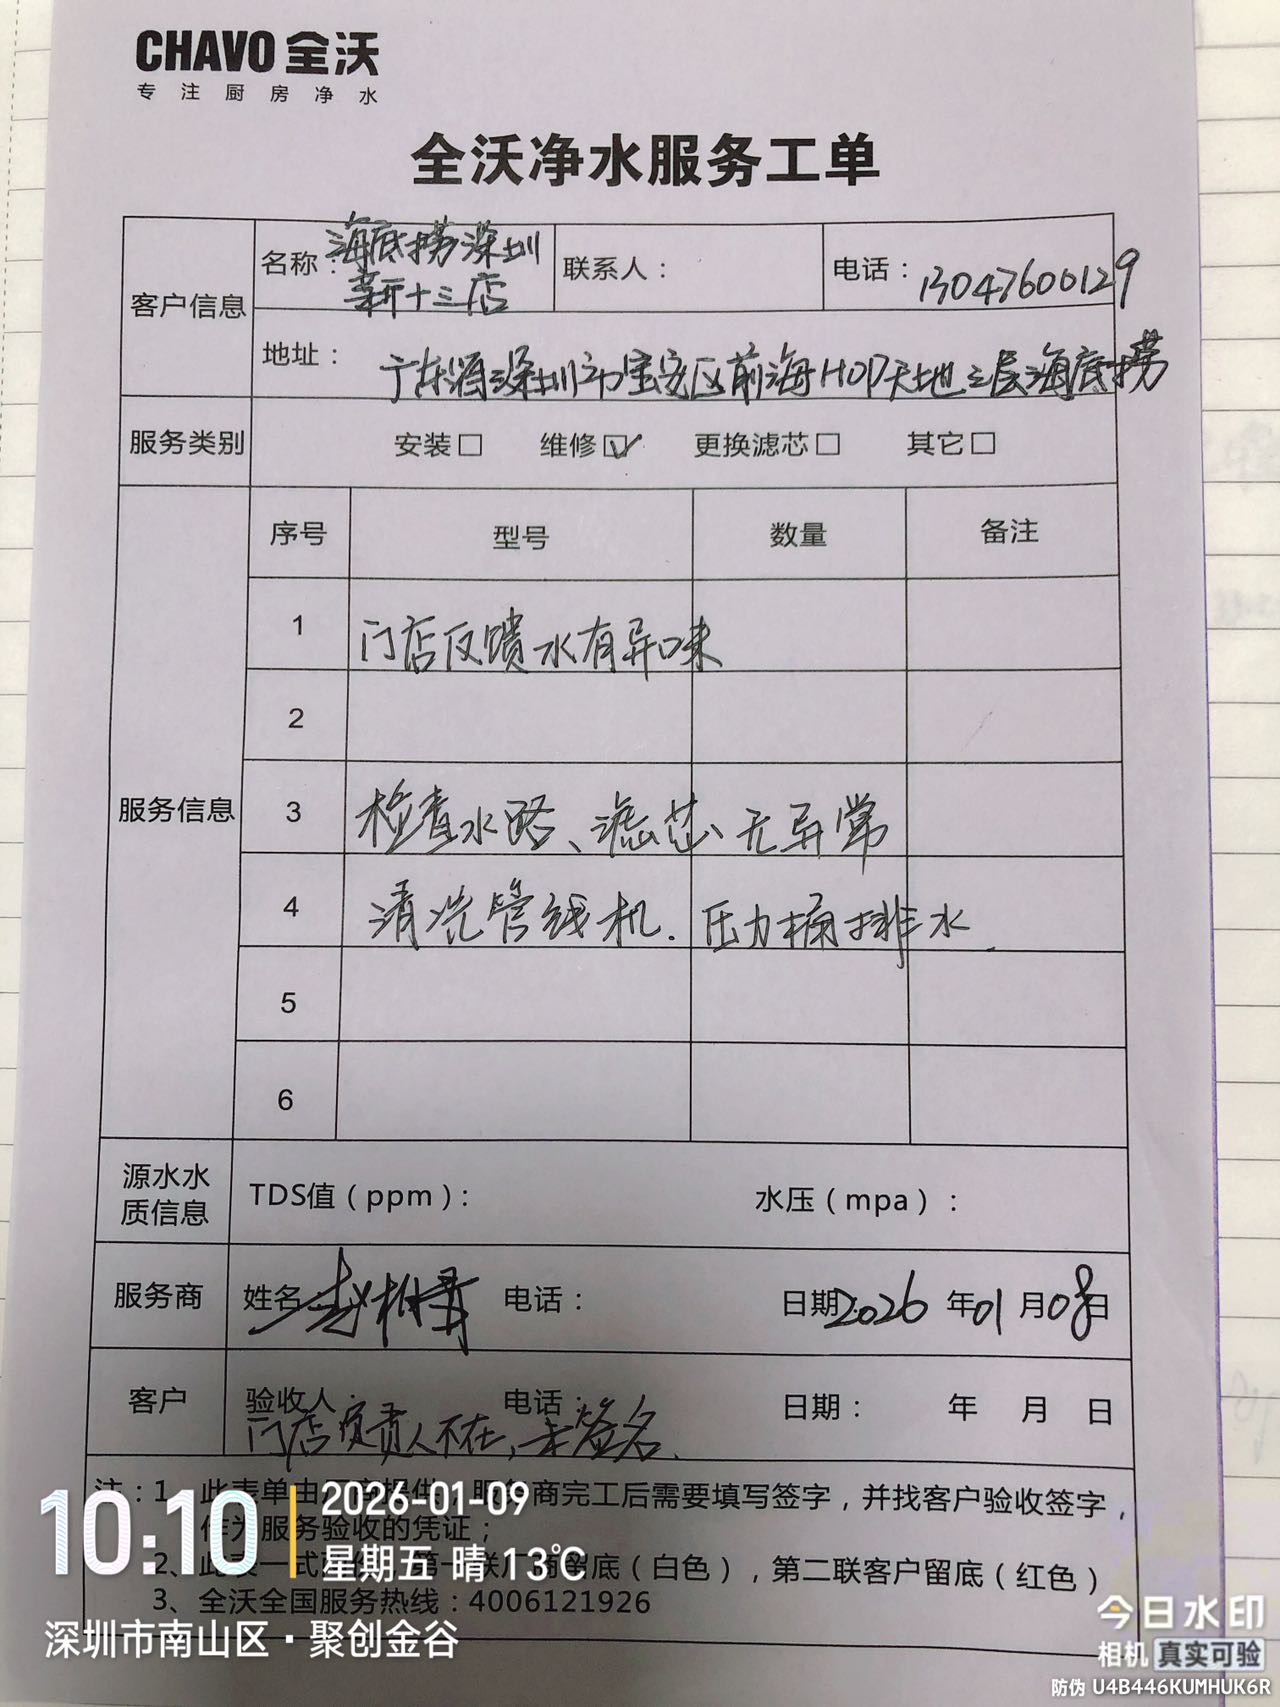 CHAVO 全沃
专注厨房净水
全沃净水服务工单
客户信息
名称：海底捞深圳
新十三店
联系人：
电话：13047600129
地址：广东深圳市宝安区前海HOP天地三层海底捞
服务类别 安装□ 维修☑ 更换滤芯□ 其它□
服务信息
序号 型号 数量 备注
1 门店反馈水有异味
2
3 检查水路、滤芯无异常
4 清洗管线机.压力桶排水.
5
6
源水水
质信息
TDS值（ppm）： 水压（mpa）：
服务商 姓名 电话： 日期2026年01月08日
客户 验收人： 电话： 日期： 年 月 日
门店负责人不在，未签名.
注：1、此表单由 提供，服务商完工后需要填写签字，并找客户验收签字，
作为服务验收的凭证；
2、此表一式 第一联 商留底（白色），第二联客户留底（红色）
3、全沃全国服务热线：4006121926
10:10
2026-01-09
星期五 晴 13℃
深圳市南山区·聚创金谷
今日水印
相机 真实可验
防伪 U4B446KUMHUK6R